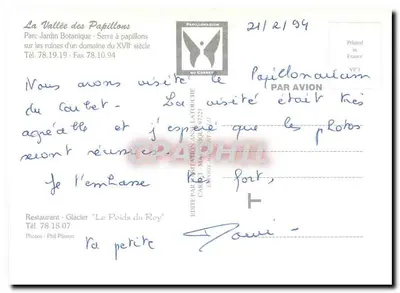 La Vallée des Papillons
Parc Jardin Botanique - Serre à papillons
sur les ruines d'un domaine du XVIIe siècle
Tél. 78.19.19 - Fax 78.10.94
AU CARBET
21/2/94
Printed
in
France
PAR AVION
Nous avons visité le Papillonarium
du Carbet - La visite était très
agréable et j'espère que les photos
seront réussies.
Je t'embrasse très fort,
Restaurant - Glacier "Le Poids du Roy"
Tél. 78 18-07
Ta petite